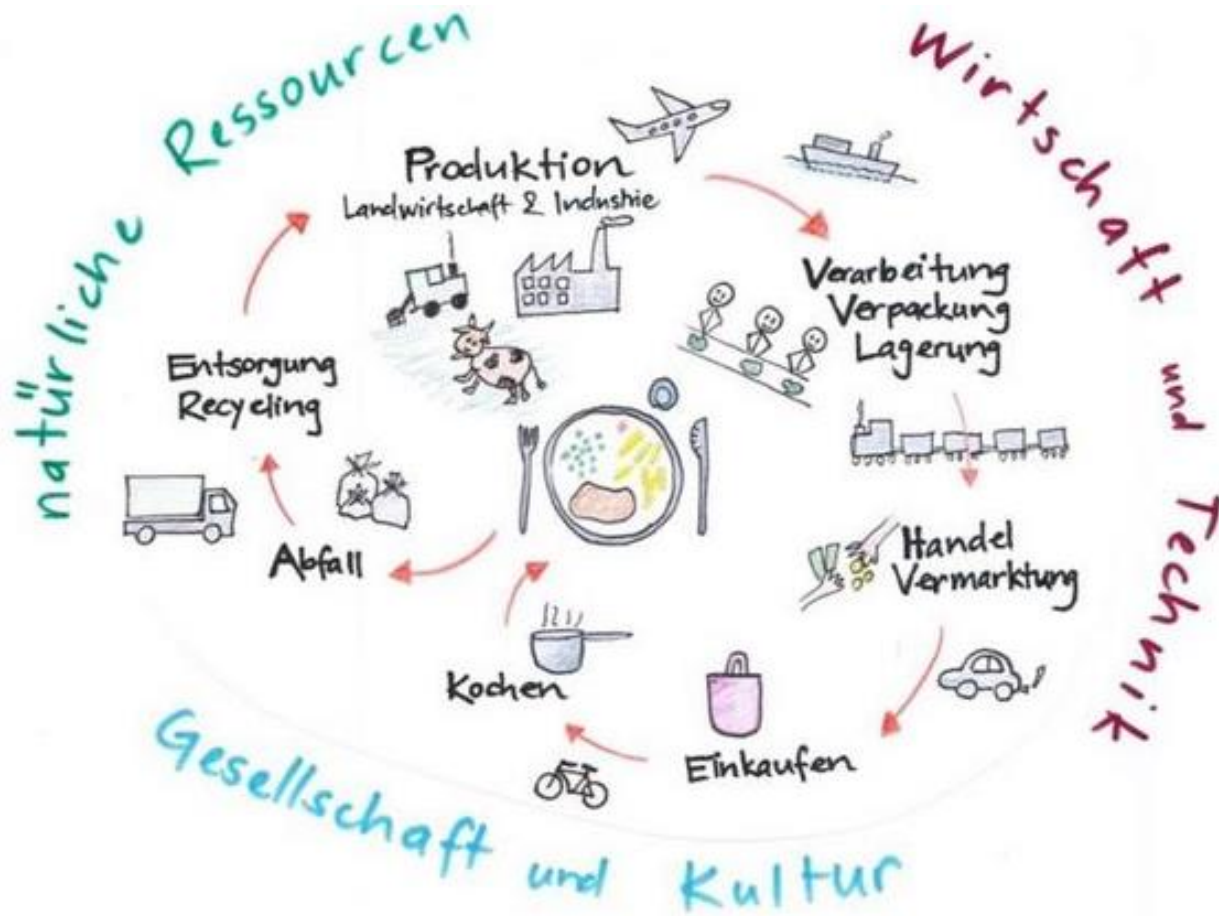 natürliche Ressourcen
Wirtschaft und Technik
Produktion
Landwirtschaft & Industrie
Verarbeitung
Verpackung
Lagerung
Handel
Vermarktung
Einkaufen
Kochen
Abfall
Entsorgung
Recycling
Gesellschaft und Kultur